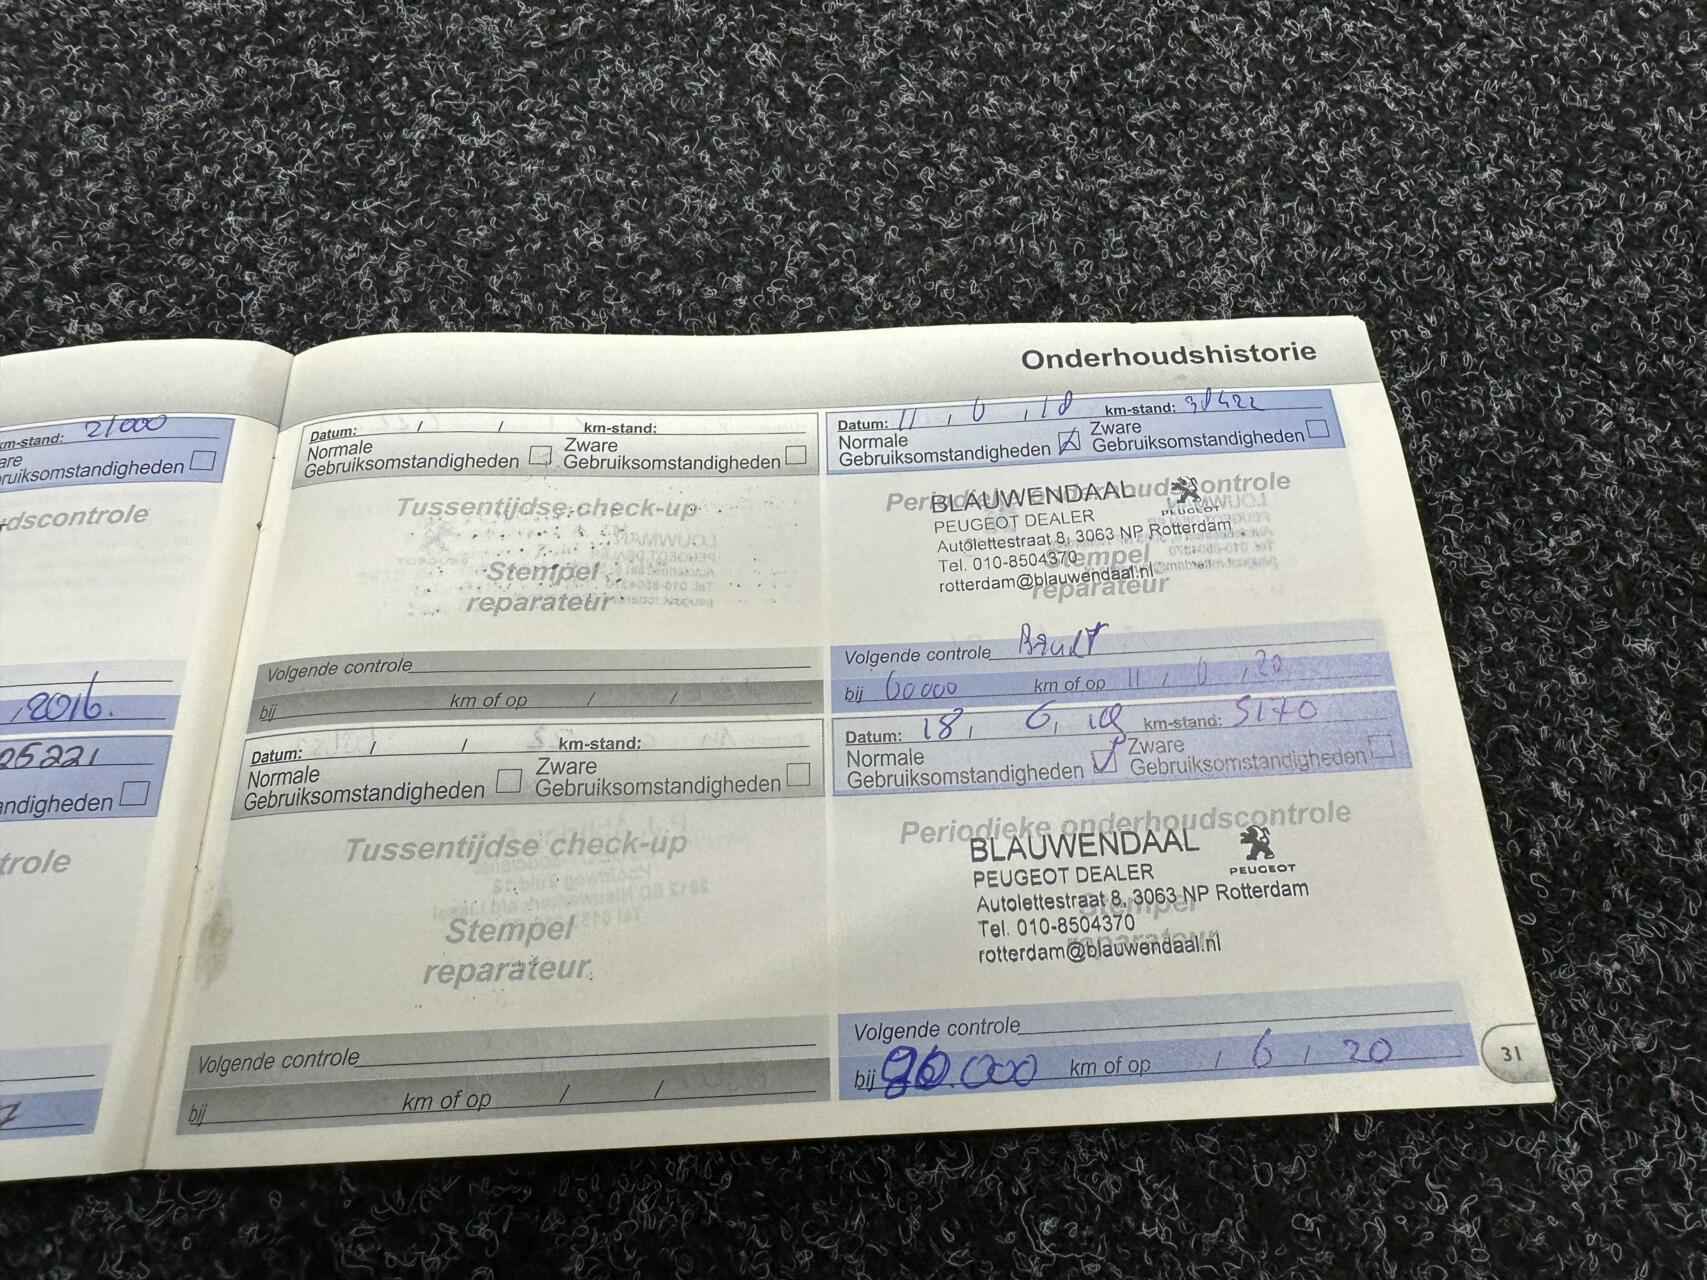 Onderhoudshistorie
km-stand: 21000
are
ruiksomstandigheden
dscontrole
, 2016.
25221
andigheden
trole
7
Datum: / / km-stand:
Normale Zware
Gebruiksomstandigheden Gebruiksomstandigheden
Tussentijdse check-up
Stempel
reparateur
Volgende controle
bij km of op / /
Datum: / / km-stand:
Normale Zware
Gebruiksomstandigheden Gebruiksomstandigheden
Tussentijdse check-up
Stempel
reparateur
Volgende controle
bij km of op / /
Datum: 11 , 6 , 18 km-stand: 38422
Normale Zware
Gebruiksomstandigheden Gebruiksomstandigheden
Periodieke onderhoudscontrole
BLAUWENDAAL
PEUGEOT
PEUGEOT DEALER
Autolettestraat 8, 3063 NP Rotterdam
Tel. 010-8504370
Stempel
rotterdam@blauwendaal.nl
reparateur
Volgende controle
bij 60000 km of op 11 , 6 , 20
Datum: 18 , 6 , km-stand: 5170
Normale Zware
Gebruiksomstandigheden Gebruiksomstandigheden
Periodieke onderhoudscontrole
BLAUWENDAAL
PEUGEOT
PEUGEOT DEALER
Autolettestraat 8, 3063 NP Rotterdam
Stempel
Tel. 010-8504370
reparateur
rotterdam@blauwendaal.nl
Volgende controle
bij .000 km of op , 6 , 20
31